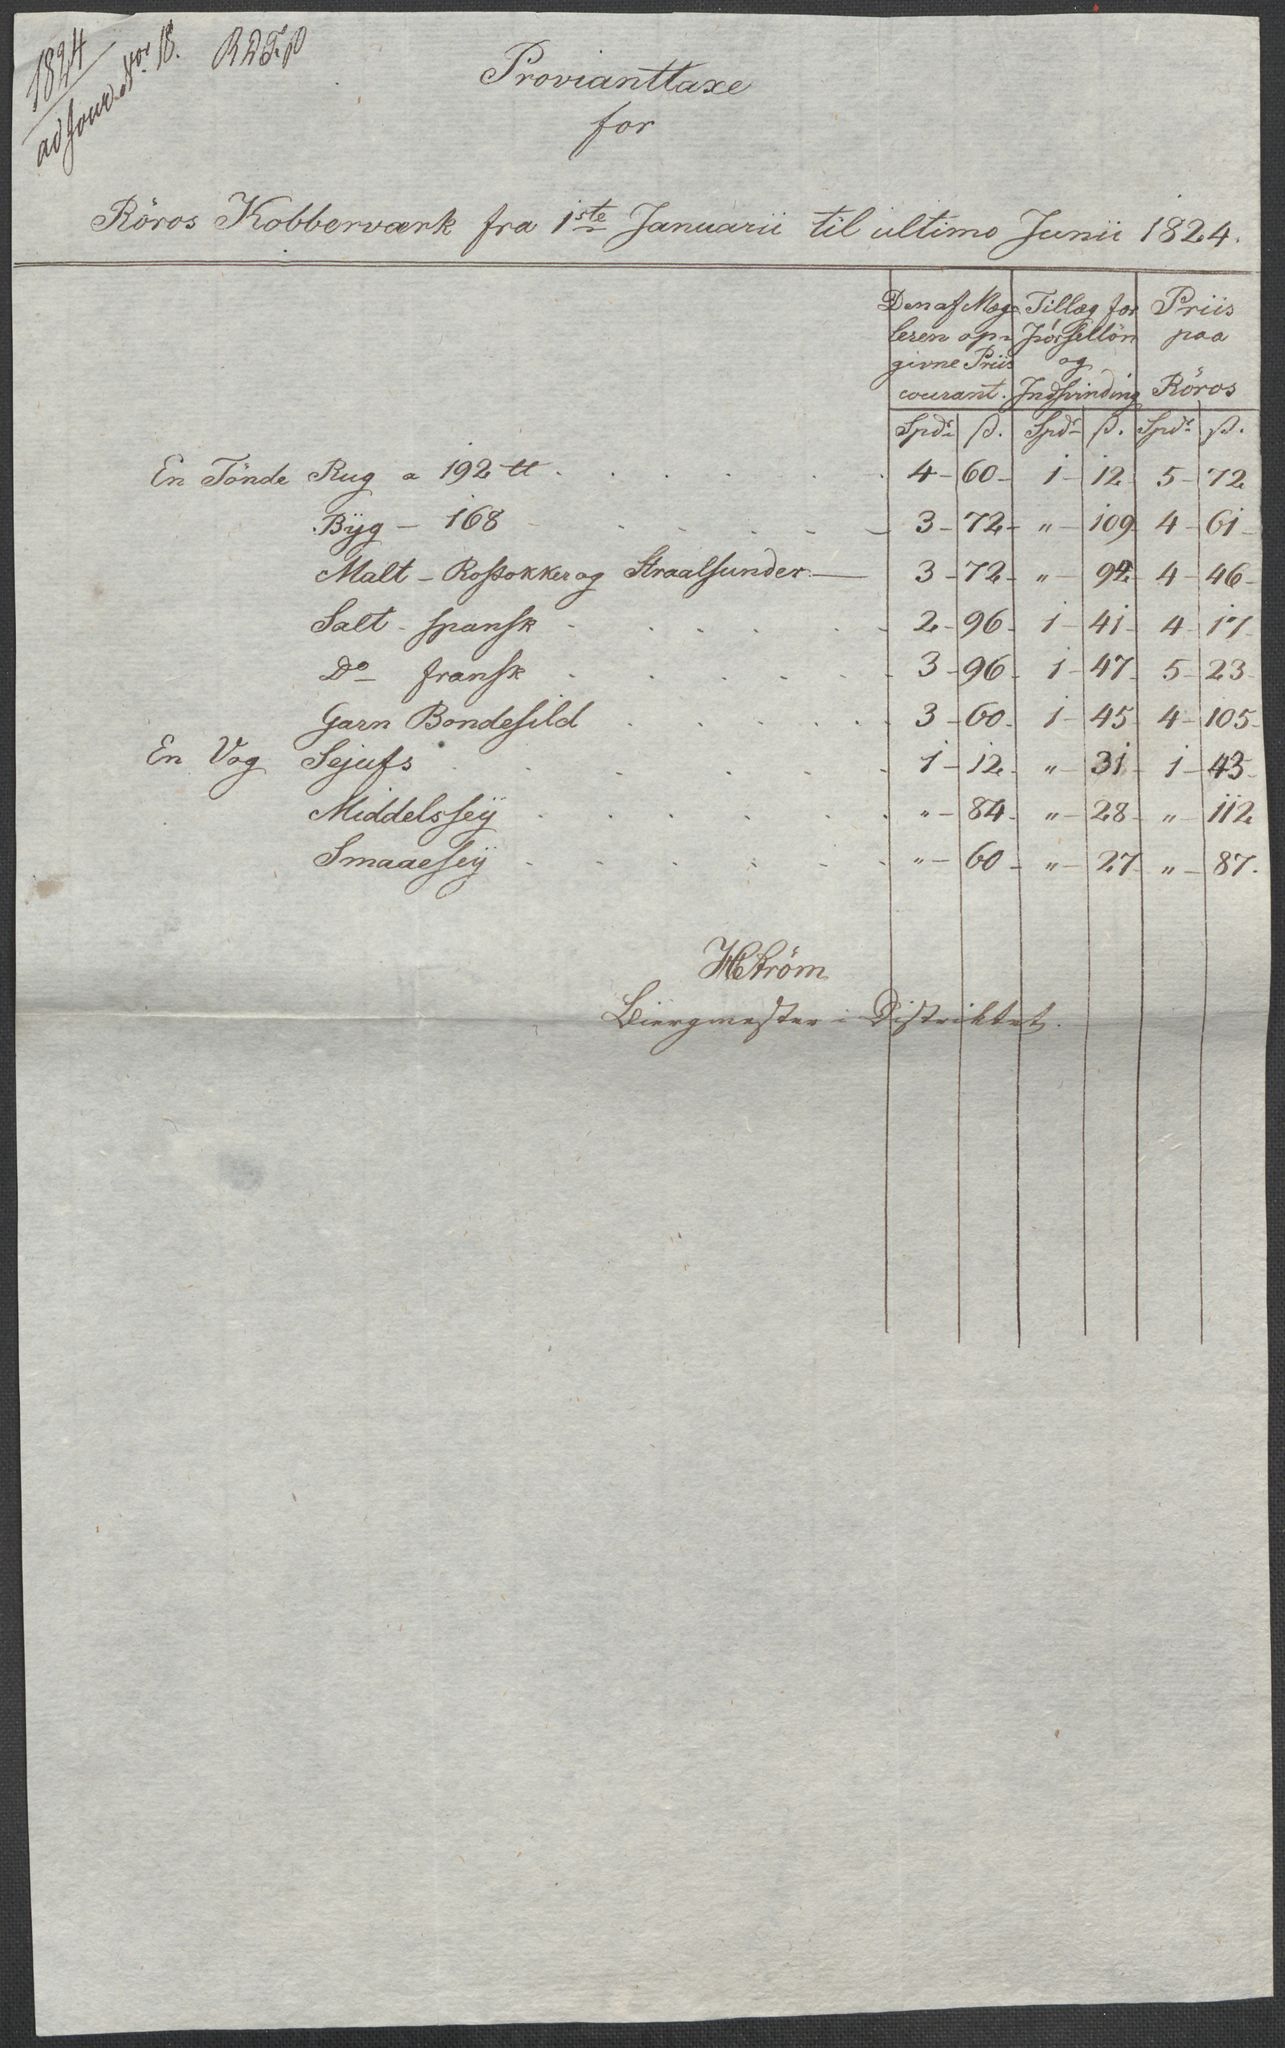 1824
ad Jour. No. 18.
Provianttaxe
for
Röros Kobberværk fra 1ste Januarii til ultimo Junii 1824.
Den af Mæg- Tillæg for Priis
leren op- Försellön paa
givne Priis og
courant. Indsvinding Röros
Spdr ß. Spdr ß. Spdr ß.
En Tönde Rug a 192 tt 4 - 60 - 1 - 12 - 5 - 72
Byg - 168 3 - 72 - " - 109 - 4 - 61 -
Malt - Rostokker og Straalsunder 3 - 72 - " - 94 - 4 - 46 -
Salt - spansk 2 - 96 - 1 - 41 - 4 - 17
Do - fransk 3 - 96 - 1 - 47 - 5 - 23
Garn Bondesild 3 - 60 - 1 - 45 - 4 - 105 -
En Vog Sejufs 1 - 12 - " - 31 - 1 - 43 -
Middelssey " - 84 - " - 28 - " - 112
Smaaesey " - 60 - " - 27 - " - 87.
HStröm
Biergmester i Distriktet.